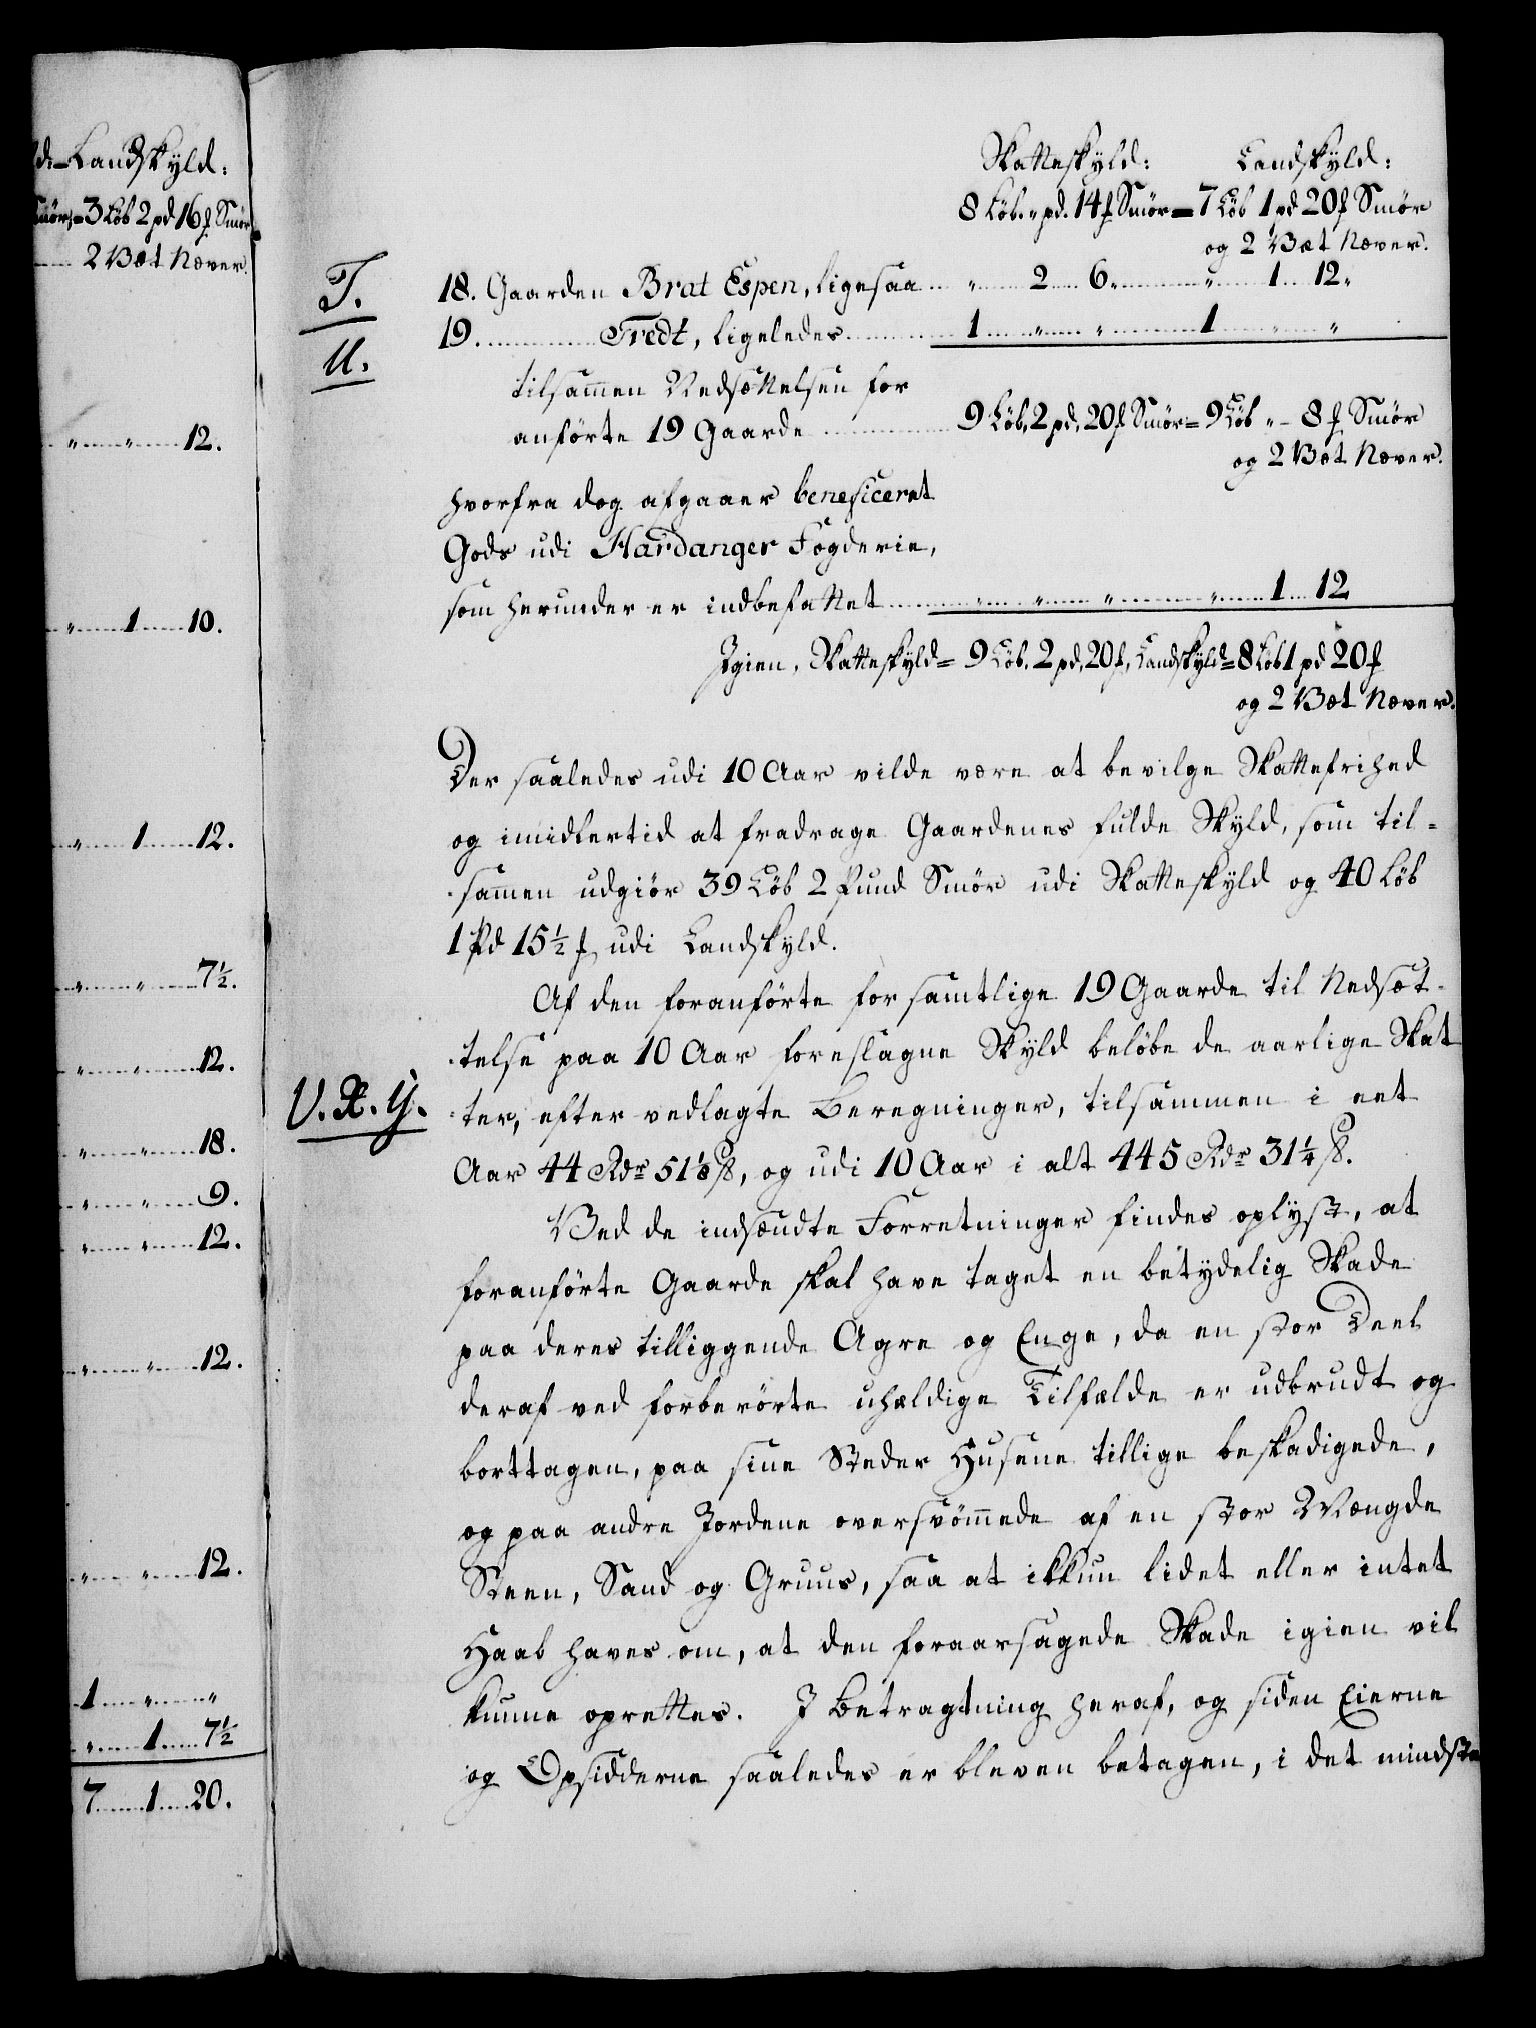 d:=Landskyld:
Smör,=3 Löb 2 pd 16 ℔ Smör
2 Bæt Næver.
" " 12.
" 1 10.
" 1 12.
" " 7½.
" " 12.
" " 18.
" " 9.
" " 12.
" " 12.
" " 12.
1 " "
" 1 7½
7 1 20.
Skatteskyld: Landskyld:
8 Löb. " pd. 14 ℔ Smör = 7 Löb 1 pd 20 ℔ Smör
og 2 Bæt Næver.
T. 18. Gaarden Brat Espen, ligesaa " 2 6. " 1 12.
U. 19. Tredt, ligeledes 1 " " 1 " "
tilsam̄en Nedsættelsen for
anförte 19 Gaarde 9 Löb, 2 pd, 20 ℔ Smör = 9 Löb " - 8 ℔ Smör
og 2 Bæt Næver.
hvorfra dog afgaaer beneficeret
Gods udi Hardanger Fogderie,
som herunder er indbefattet " " " " 1 12
Igien, Skatteskyld = 9 Löb. 2 pd, 20 ℔, Landskyld = 8 Löb 1 pd 20 ℔
og 2 Bæt Næver.
Der saaledes udi 10 Aar vilde være at bevilge Skattefrihed
og imidlertid at fradrage Gaardenes fulde Skyld, som til=
sam̄en udgiör 39 Löb 2 Pund Smör udi Skatteskyld og 40 Löb
1 Pd 15½ ℔ udi Landskyld.
Af den foranförte for samtlige 19 Gaarde til Nedsæt-
telse paa 10 Aar foreslagne Skyld beløbe de aarlige Skat
V. X. Y. ter, efter vedlagte Beregninger, tilsammen i eet
Aar 44 Rdr 51⅛ ß, og udi 10 Aar i alt 445 Rdr 31¼ ß.
Ved de indsendte Forretninger findes oplyst, at
foranförte Gaarde skal have taget en betydelig Skade
paa deres tilliggende Agre og Enge, da en stor Deel
deraf ved forberörte uhældige Tilfælde er udbrudt og
borttagen, paa sine Steder Husene tillige beskadigede,
og paa andre Jordene oversvöm̄ede af en stor Mængde
Steen, Sand og Gruus, saa at ikkun lidet eller intet
Haab haves om, at den foraarsagede Skade igien vil
kunne oprettes. I Betragtning heraf, og siden Eierne
og Opsidderne saaledes er bleven betagen, i det mindste